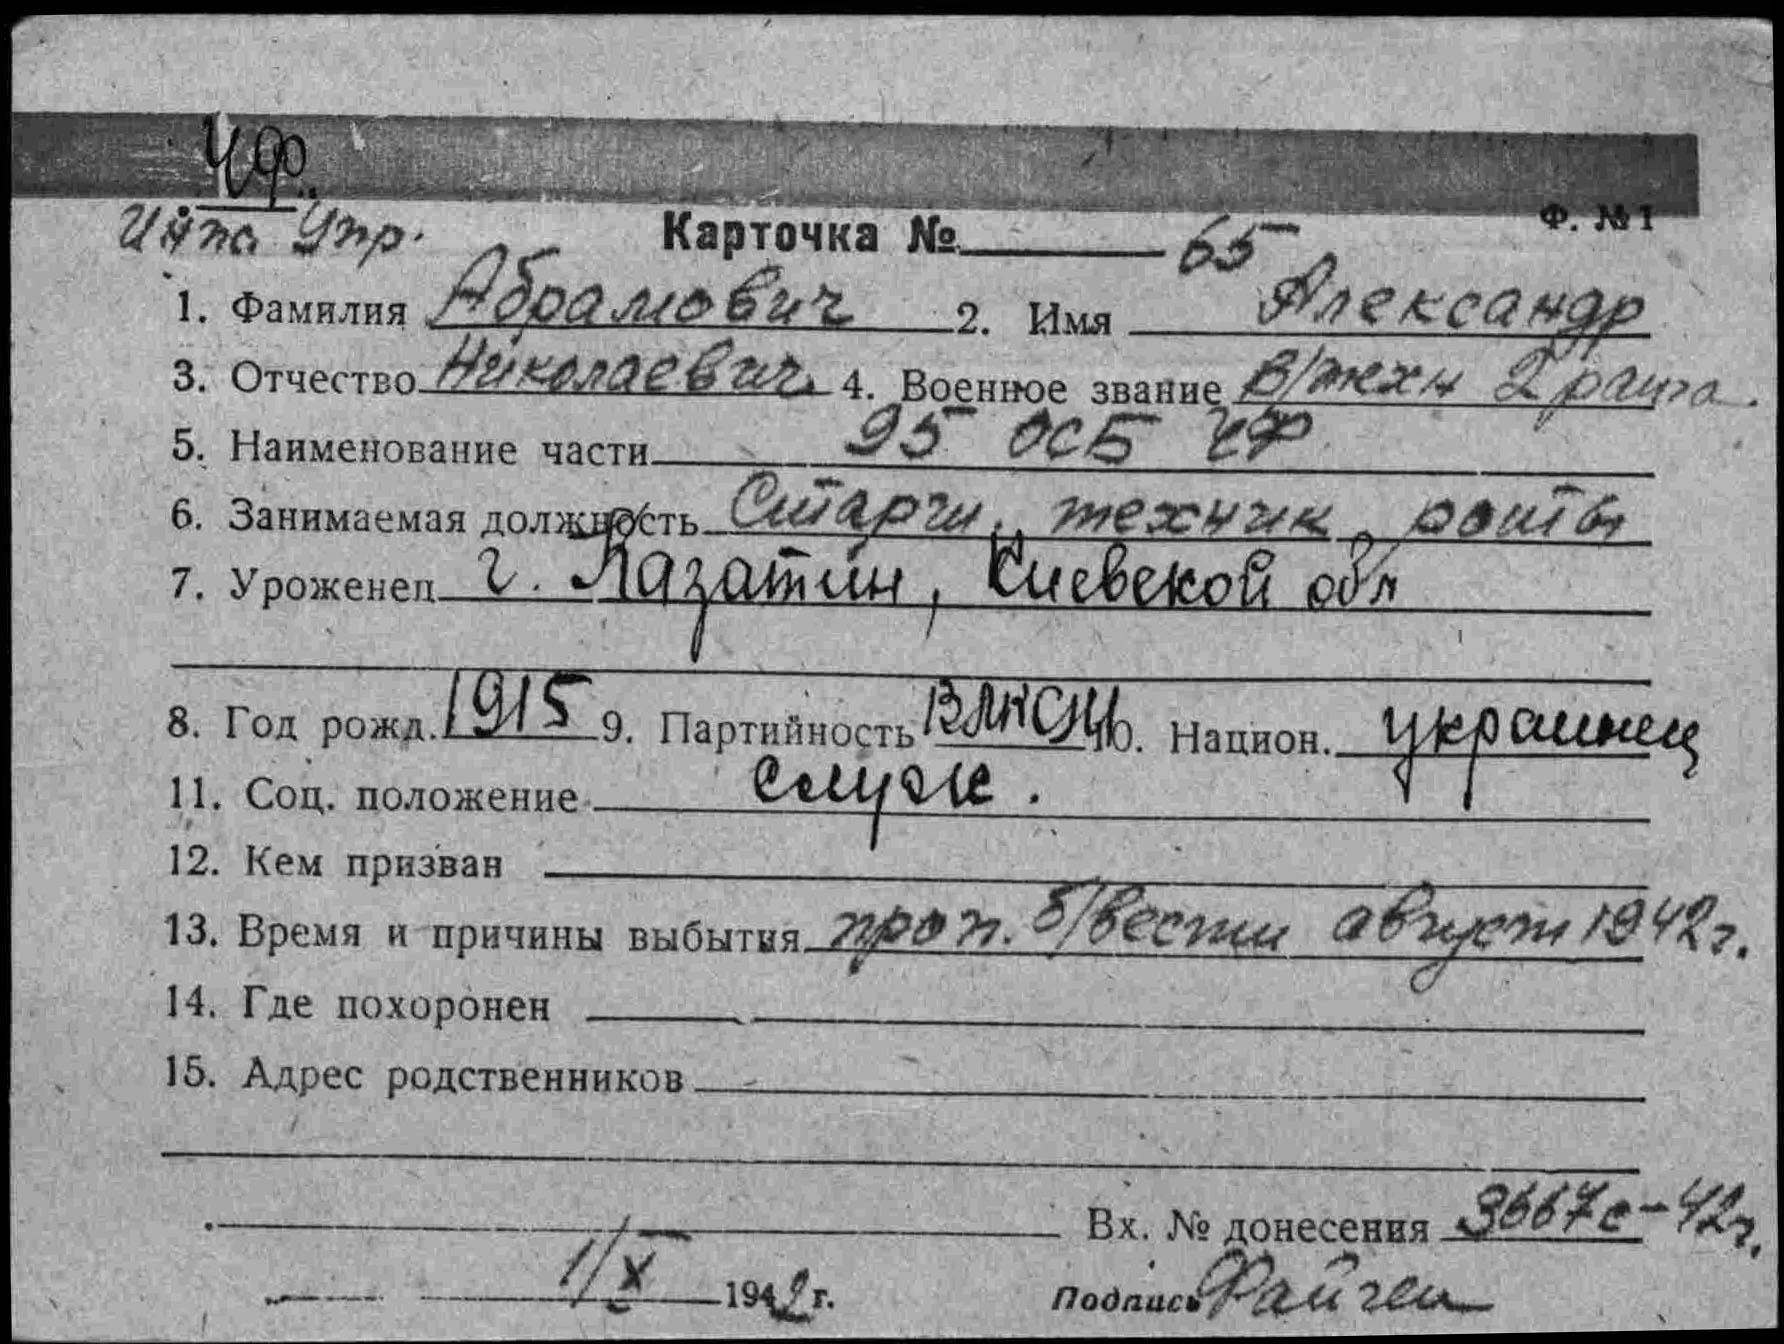 ЧФ
Инта Упр.
Ф. № 1
Карточка № 65
1. Фамилия Абрамович 2. Имя Александр
3. Отчество Николаевич 4. Военное звание В/техн 2 ранга.
5. Наименование части 95 ОСБ ЧФ
6. Занимаемая должность Старш. техник роты
7. Уроженец г. Казатин, Киевской обл
8. Год рожд. 1915 9. Партийность ВЛКСМ 10. Национ. украинец
11. Соц. положение служ.
12. Кем призван
13. Время и причины выбытия проп. б/вести август 1942 г.
14. Где похоронен
15. Адрес родственников
Вх. № донесения 3667с-42г.
1/X 1942 г. Подпись